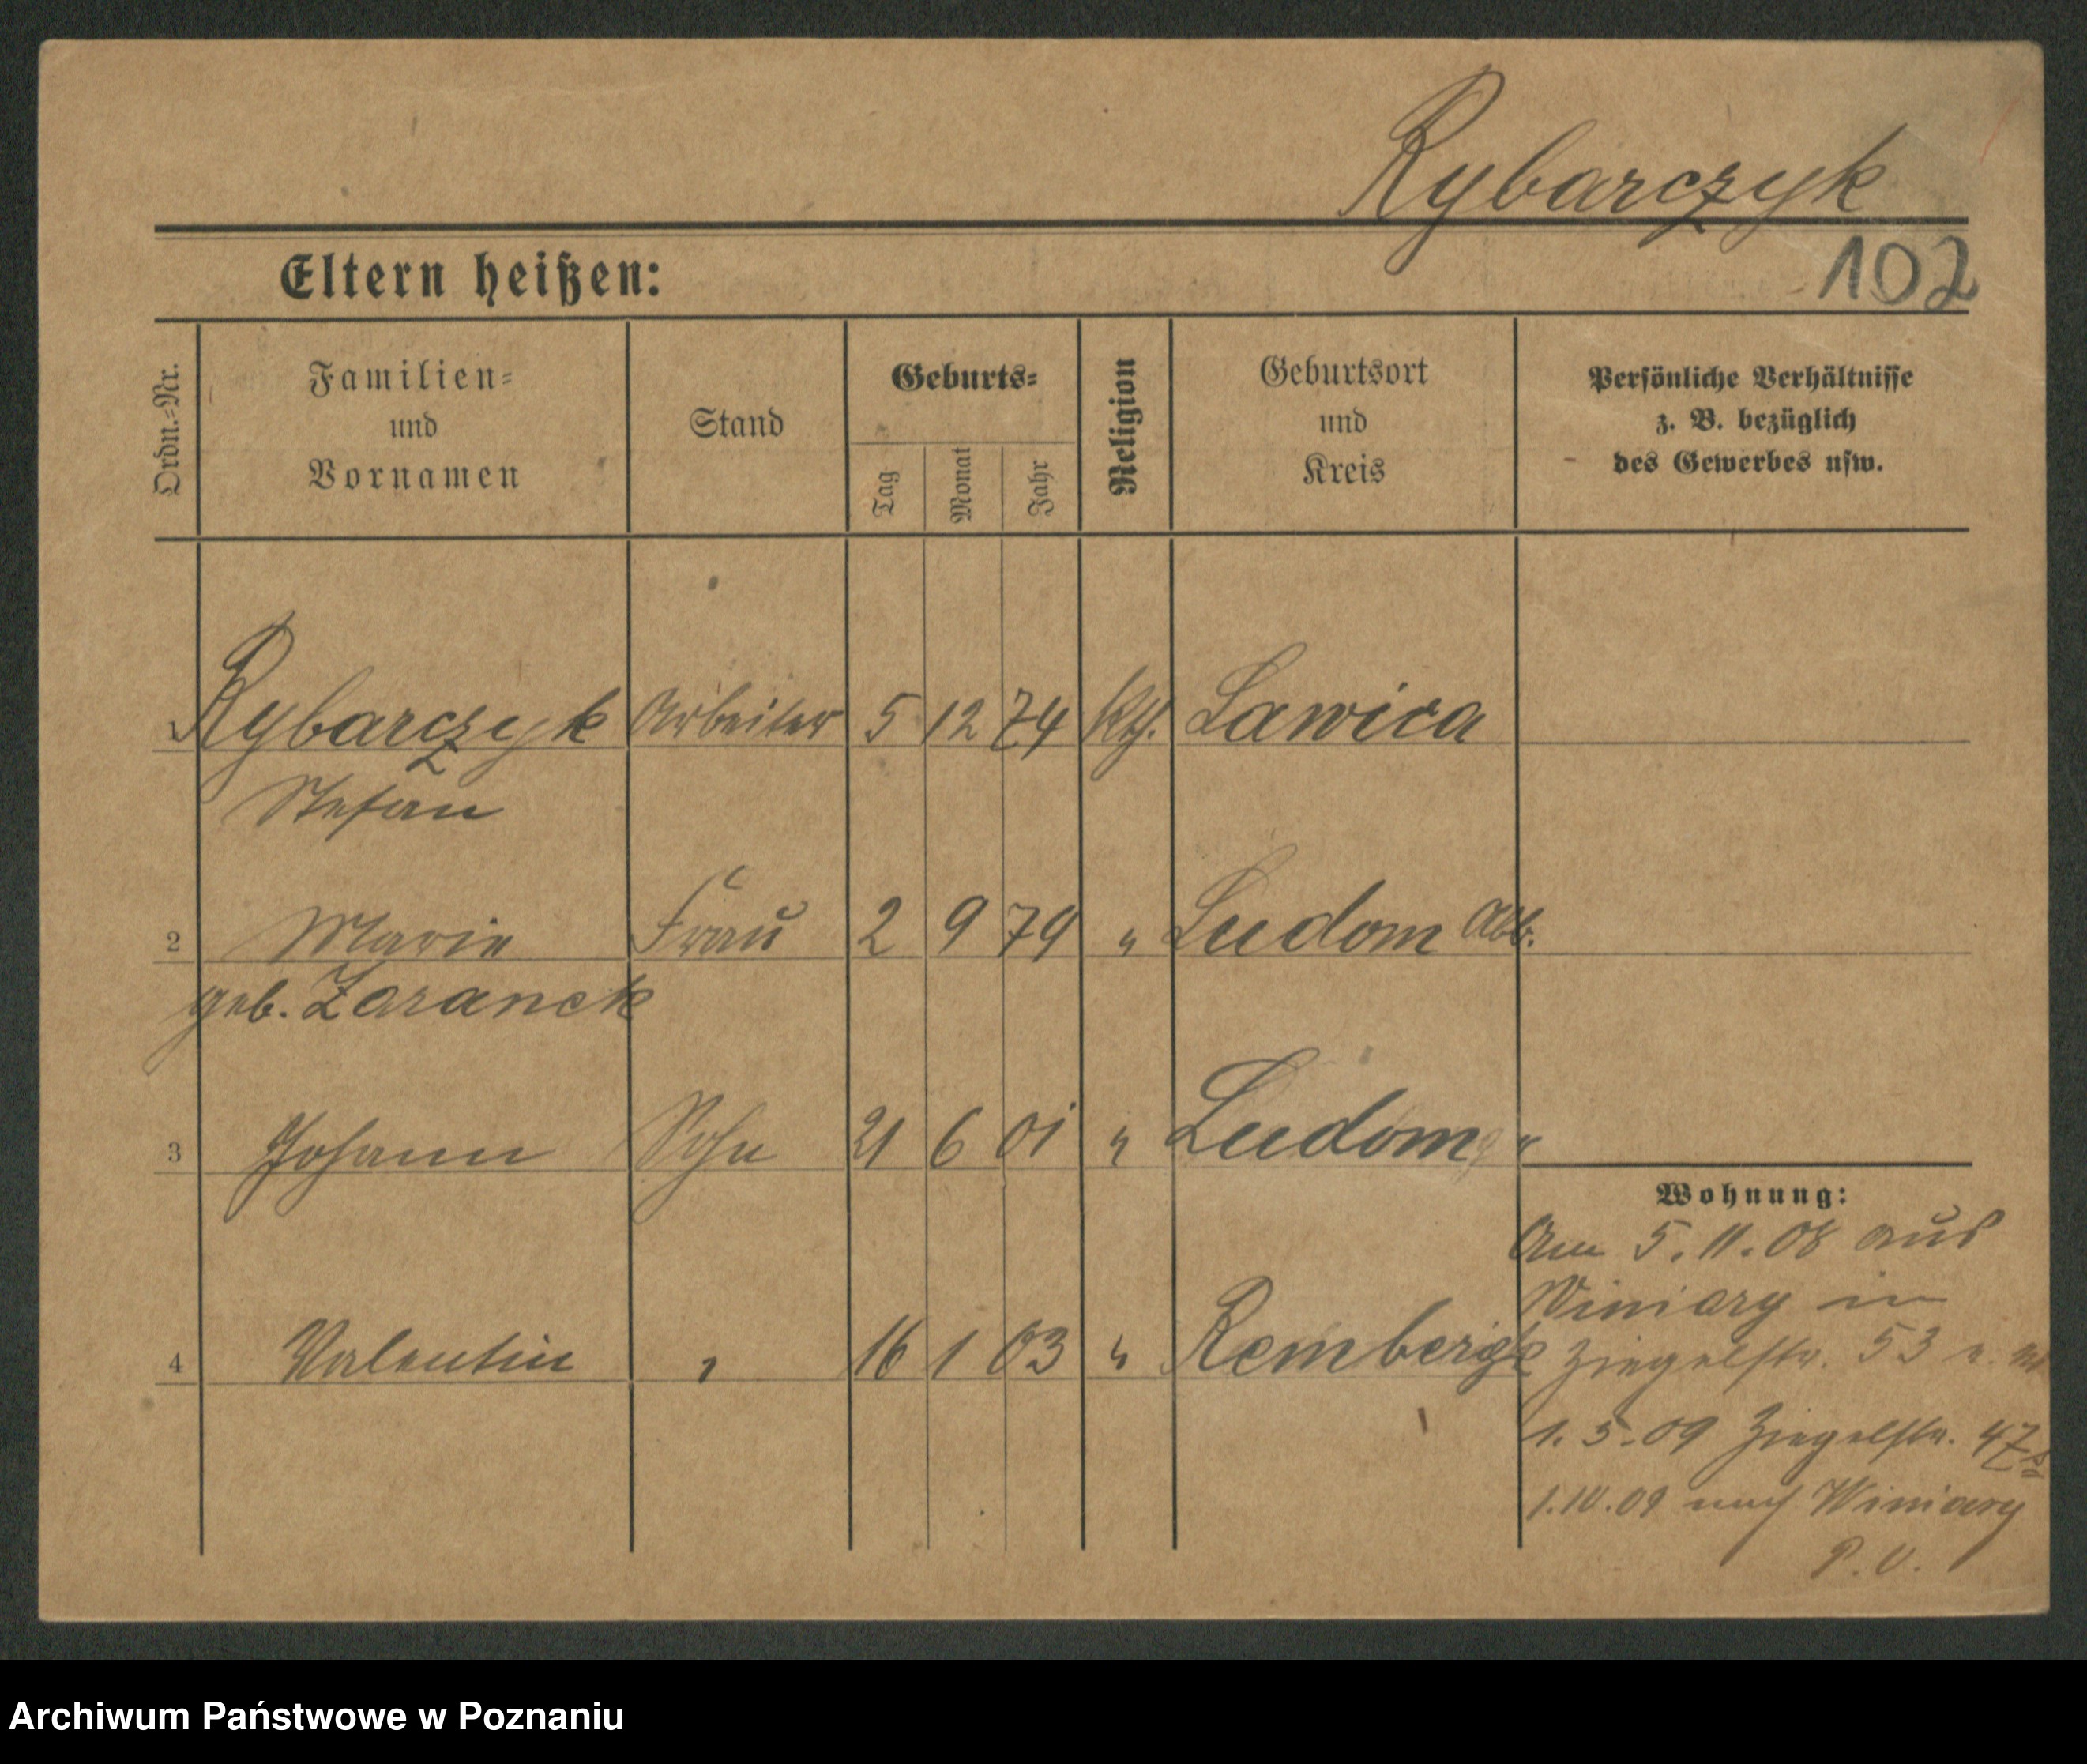 Rybarczyk
102
Eltern heißen:
Ordn.=Nr.
Familien=
und
Vornamen
Stand
Geburts=
Tag
Monat
Jahr
Religion
Geburtsort
und
Kreis
Persönliche Verhältnisse
z. B. bezüglich
des Gewerbes usw.
Rybarczyk Arbeiter 5 12 74 Kth. Lawica
Stefan
2 Marie Frau 2 9 79 " Ludom Abb.
geb. Zaranek
3 Johann Sohn 21 6 01 " Ludom "
Wohnung:
Am 5.11.08 aus
Winiary in
4 Valentin " 16 1 03 " Ziegelstr. 53
1.5.09 Ziegelstr. 47
1.10.09 nach Winiary
P. V.
Archiwum Państwowe w Poznaniu